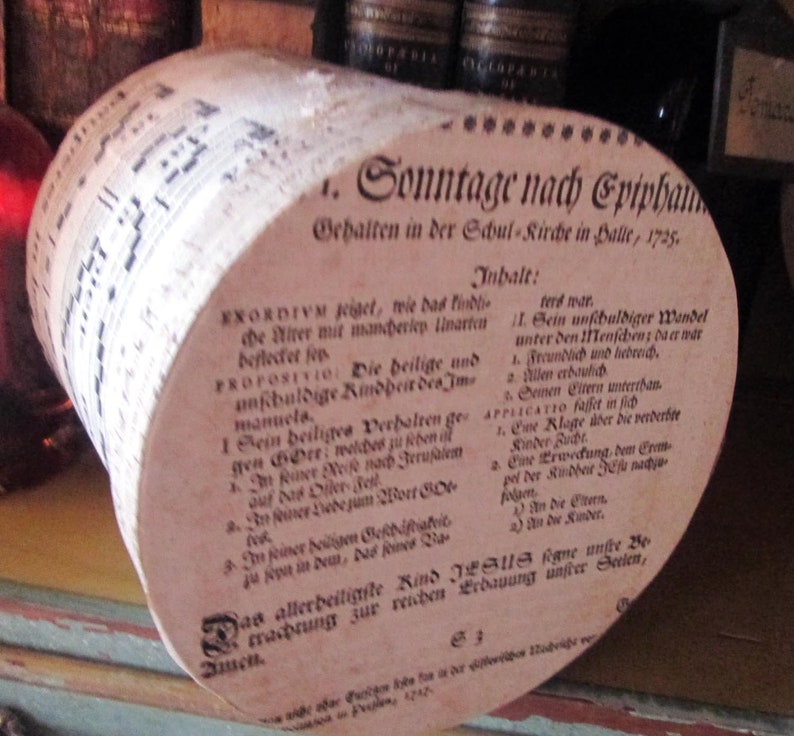 CYCLOPÆDIA
OF
CYCLOPÆDIA
OF
1. Sonntage nach Epiphan
Gehalten in der Schul-Kirche in Halle, 1725.
Inhalt:
EXORDIVM zeiget, wie das kindli-
che Alter mit mancherley Unarten
beflecket sey.
PROPOSITIO: Die heilige und
unschuldige Kindheit des Im-
manuels.
I Sein heiliges Verhalten ge-
gen GOtt; welches zu sehen ist
1. In seiner Reise nach Jerusalem
auf das Oster-Fest.
2. In seiner Liebe zum Wort GOt-
tes.
3. In seiner heiligen Geschäftigkeit,
zu seyn in dem, das seines Va-
ters war.
II. Sein unschuldiger Wandel
unter den Menschen; da er war
1. Freundlich und liebreich.
2. Allen erbaulich.
3. Seinen Eltern unterthan.
APPLICATIO fasset in sich
1. Eine Klage über die verderbte
Kinder-Zucht.
2. Eine Erweckung, dem Exem-
pel der Kindheit JEsu nachzu-
folgen.
1) An die Eltern.
2) An die Kinder.
Das allerheiligste Kind JESUS segne unsre Be-
trachtung zur reichen Erbauung unsrer Seelen,
Amen.
S 3
in der historischen Nachricht von